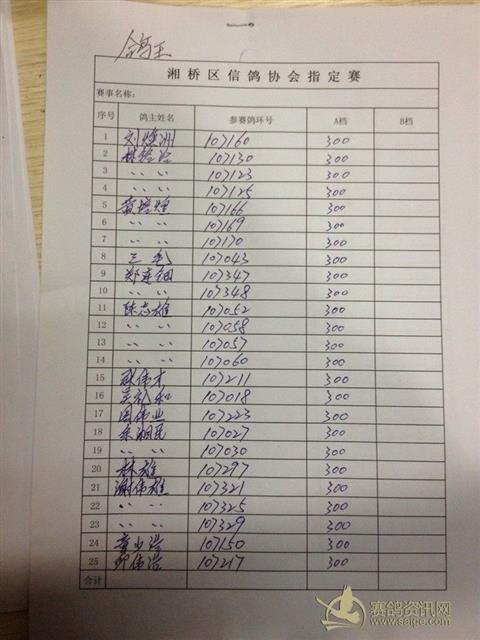 鸽王
湘桥区信鸽协会指定赛
赛事名称:
序号 鸽主姓名 参赛鸽环号 A档 B档
1 107160 300
2 107130 300
3 〃 〃 107123 300
4 〃 〃 107125 300
5 107166 300
6 〃 〃 107169 300
7 〃 〃 107170 300
8 三 107043 300
9 107347 300
10 〃 〃 107348 300
11 陈志雄 107052 300
12 〃 〃 107058 300
13 〃 〃 107057 300
14 〃 〃 107060 300
15 伟才 107211 300
16 吴礼和 107018 300
17 周伟业 107223 300
18 107027 300
19 〃 〃 107030 300
20 林雄 107297 300
21 谢伟雄 107321 300
22 〃 〃 107325 300
23 〃 〃 107329 300
24 107150 300
25 伟浩 107217 300
合计
赛鸽资讯网
www.saige.com